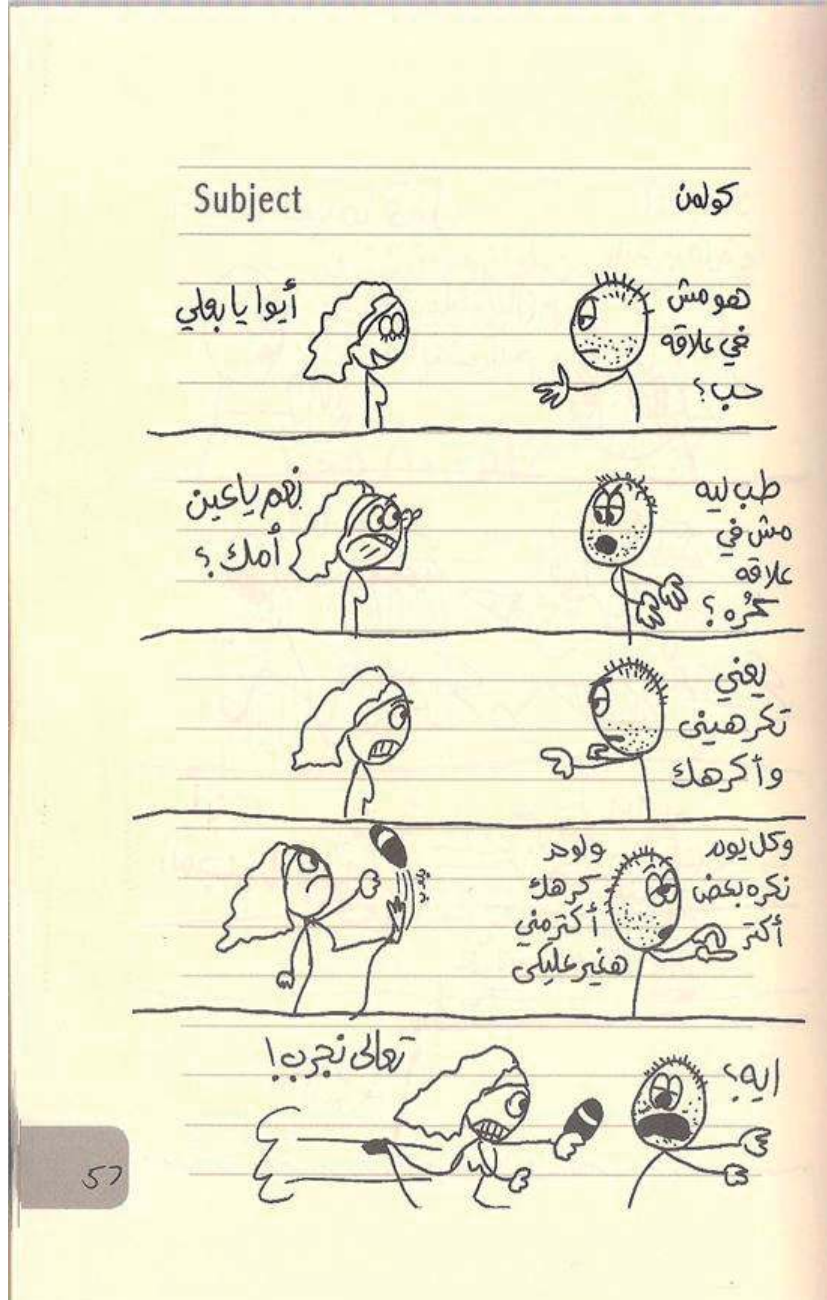 Subject
كولمن
هو مش
في علاقه
حب؟
أيوا يا بعلي
طب ليه
مش في
علاقه
كُره؟
نعم يا عين
أمك؟
يعني
تكرهيني
وأكرهك
وكل يوم
نكره بعض
أكتر
ولو حد
كرهك
أكتر مني
هغير عليكي
ايه؟
تعالى نجرب!
57